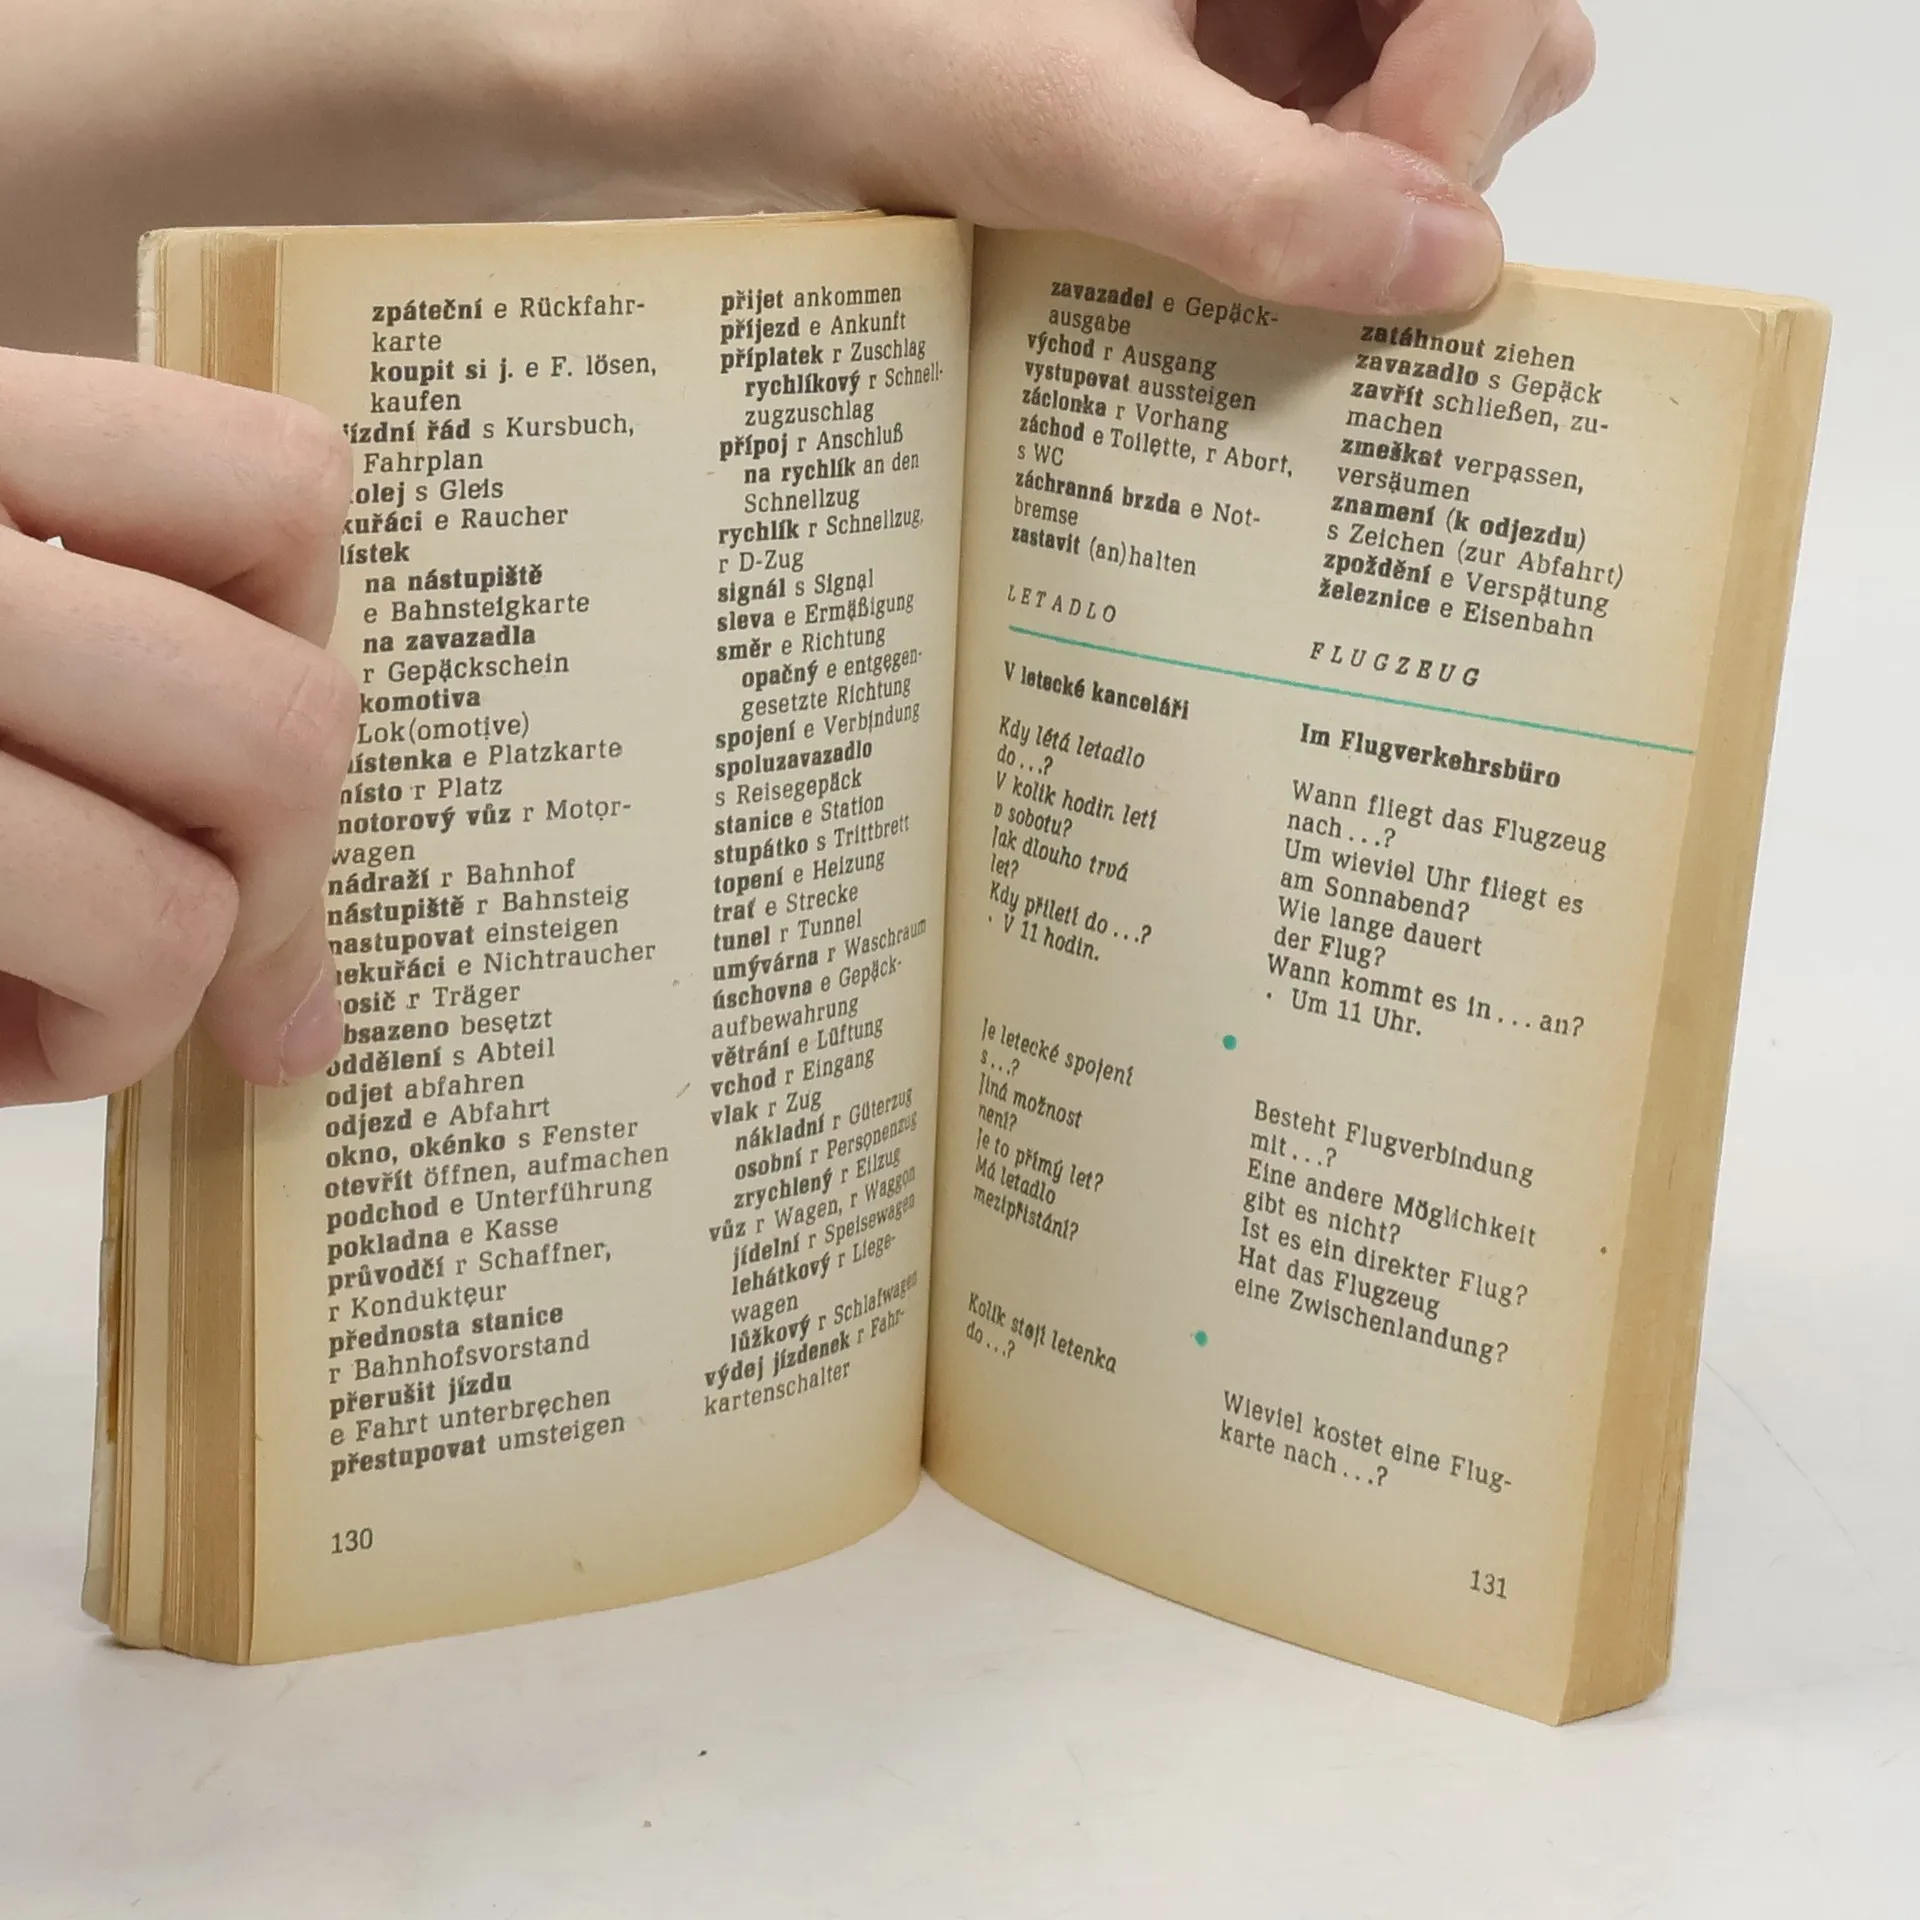 zpáteční e Rückfahr-
karte
koupit si j. e F. lösen,
kaufen
jízdní řád s Kursbuch,
Fahrplan
olej s Gleis
kuřáci e Raucher
lístek
na nástupiště
e Bahnsteigkarte
na zavazadla
r Gepäckschein
komotiva
Lok(omotive)
ístenka e Platzkarte
místo r Platz
motorový vůz r Motor-
wagen
nádraží r Bahnhof
nástupiště r Bahnsteig
nastupovat einsteigen
nekuřáci e Nichtraucher
osič r Träger
obsazeno besetzt
oddělení s Abteil
odjet abfahren
odjezd e Abfahrt
okno, okénko s Fenster
otevřít öffnen, aufmachen
podchod e Unterführung
pokladna e Kasse
průvodčí r Schaffner,
r Kondukteur
přednosta stanice
r Bahnhofsvorstand
přerušit jízdu
e Fahrt unterbrechen
přestupovat umsteigen
130
přijet ankommen
příjezd e Ankunft
příplatek r Zuschlag
rychlíkový r Schnell-
zugzuschlag
přípoj r Anschluß
na rychlík an den
Schnellzug
rychlík r Schnellzug,
r D-Zug
signál s Signal
sleva e Ermäßigung
směr e Richtung
opačný e entgegen-
gesetzte Richtung
spojení e Verbindung
spoluzavazadlo
s Reisegepäck
stanice e Station
stupátko s Trittbrett
topení e Heizung
trať e Strecke
tunel r Tunnel
umývárna r Waschraum
úschovna e Gepäck-
aufbewahrung
větrání e Lüftung
vchod r Eingang
vlak r Zug
nákladní r Güterzug
osobní r Personenzug
zrychlený r Eilzug
vůz r Wagen, r Waggon
jídelní r Speisewagen
lehátkový r Liege-
wagen
lůžkový r Schlafwagen
výdej jízdenek r Fahr-
kartenschalter
zavazadel e Gepäck-
ausgabe
východ r Ausgang
vystupovat aussteigen
záclonka r Vorhang
záchod e Toilette, r Abort,
s WC
záchranná brzda e Not-
bremse
zastavit (an)halten
zatáhnout ziehen
zavazadlo s Gepäck
zavřít schließen, zu-
machen
zmeškat verpassen,
versäumen
znamení (k odjezdu)
s Zeichen (zur Abfahrt)
zpoždění e Verspätung
železnice e Eisenbahn
LETADLO
FLUGZEUG
V letecké kanceláři
Kdy létá letadlo
do...?
V kolik hodin letí
v sobotu?
Jak dlouho trvá
let?
Kdy přiletí do...?
• V 11 hodin.
Je letecké spojení
s...?
Jiná možnost
není?
Je to přímý let?
Má letadlo
mezipřistání?
Kolik stojí letenka
do...?
Im Flugverkehrsbüro
Wann fliegt das Flugzeug
nach...?
Um wieviel Uhr fliegt es
am Sonnabend?
Wie lange dauert
der Flug?
Wann kommt es in...an?
• Um 11 Uhr.
Besteht Flugverbindung
mit...?
Eine andere Möglichkeit
gibt es nicht?
Ist es ein direkter Flug?
Hat das Flugzeug
eine Zwischenlandung?
Wieviel kostet eine Flug-
karte nach...?
131